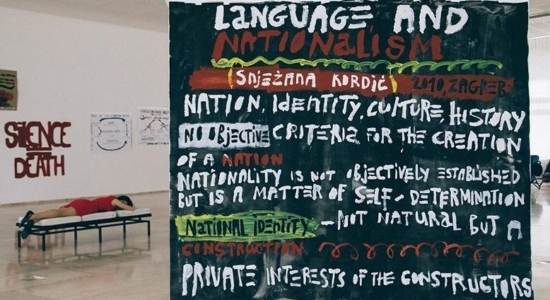 LANGUAGE AND
NATIONALISM
(SNJEŽANA KORDIĆ) 2010, ZAGREB
NATION, IDENTITY, CULTURE, HISTORY
NO OBJECTIVE CRITERIA FOR THE CREATION
OF A NATION
NATIONALITY IS NOT OBJECTIVELY ESTABLISHED
BUT IS A MATTER OF SELF-DETERMINATION
NATIONAL IDENTITY - NOT NATURAL BUT A
CONSTRUCTION
PRIVATE INTERESTS OF THE CONSTRUCTORS
SILENCE
=
DEATH